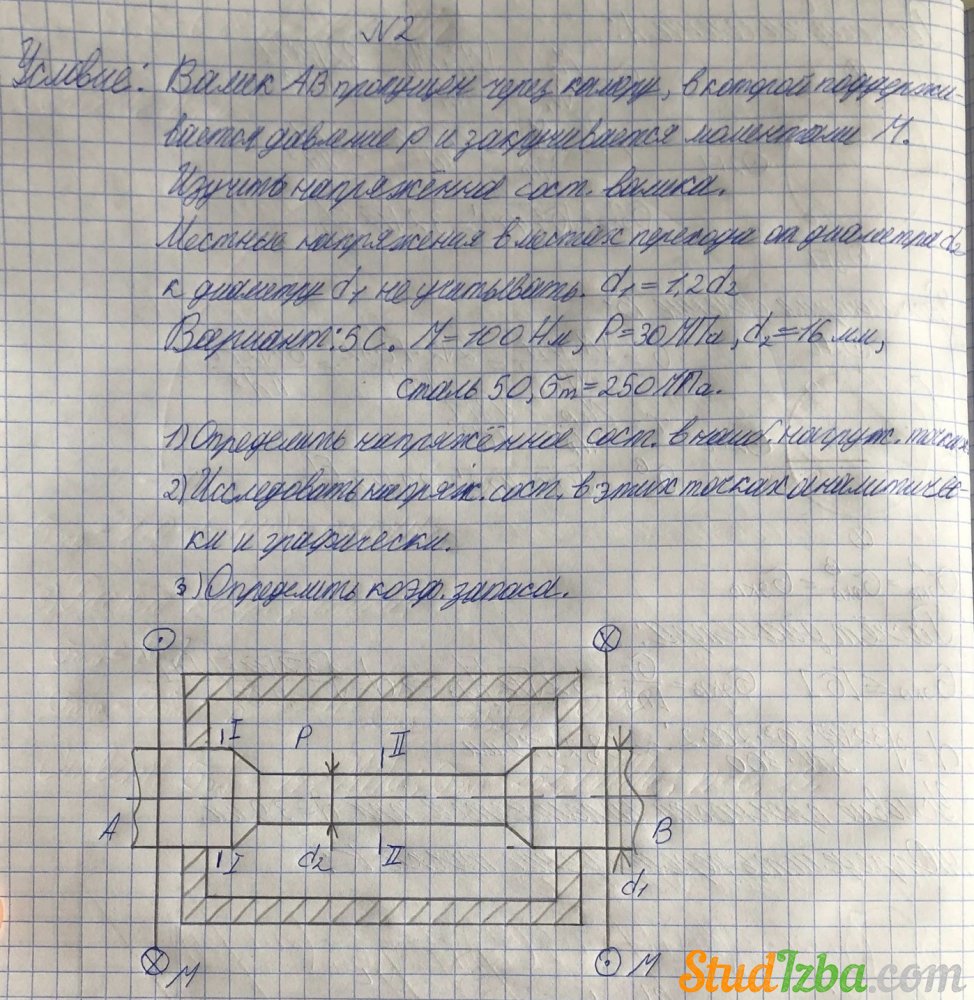 N2
Условие: Валик АВ пропущен через камеру, в которой поддержи-
вается давление р и закручивается моментами М.
Изучить напряжённое сост. валика.
Местные напряжения в местах перехода от диаметра d2
к диаметру d1 не учитывать. d1 = 1,2d2
Вариант: 5С. М = 100 Нм, Р = 30 МПа, d2 = 16 мм,
сталь 50, σт = 250 МПа.
1) Определить напряжённое сост. в наиб. нагруж. точках
2) Исследовать напряж. сост. в этих точках аналитичес-
ки и графически.
3) Определить коэф. запаса.
I P II
A B
I d2 II
d1
M M
StudIzba.com